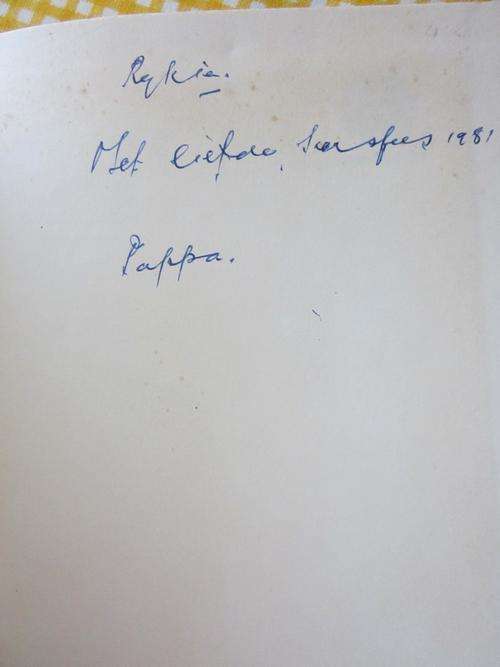 Rykie.
Met liefde, Kersfees 1981
Pappa.